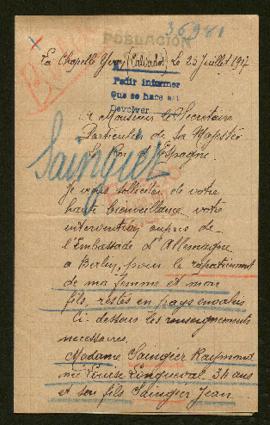 36981
POBLACION
La Chapelle Yvon (Calvados) le 25 Juillet 1917
Pedir informes
que se hace en
Devolver
à Monsieur le Secrétaire
Particulier de sa Majesté
le Roi d'Espagne.
Sainguier
Je viens solliciter de votre
haute bienveillance votre
intervention auprès de
l'Embassade d'Allemagne
a Berlin, pour le rapatriement
de ma femme et mon
fils, restés en pays envahis
Ci-dessous les renseignements
nécessaires.
Madame Sainguier Raymond
née Louise Longueval, 34 ans
et son fils Sainguier Jean.